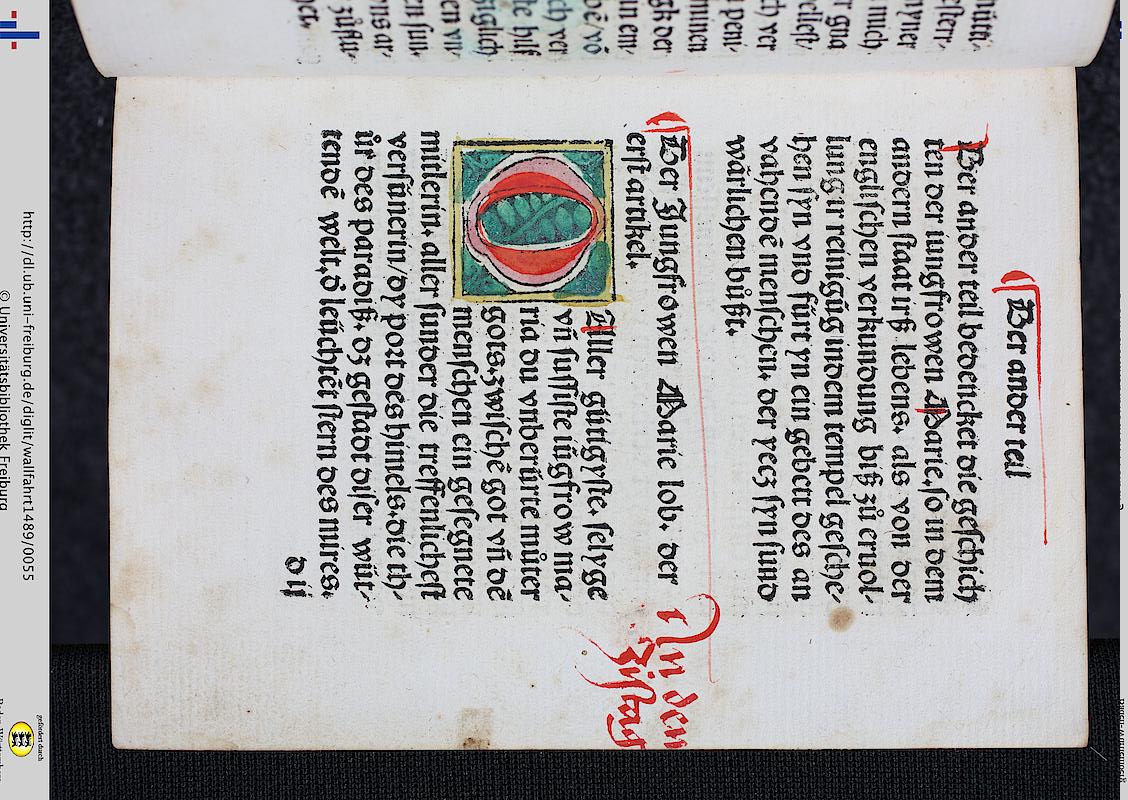 Der ander teil
Der ander teil bedencket die geschich
ten der iungfrowen Marie, so in dem
andern staat irß lebens. als von der
englischen verkundung biß zů ernol⸗
lung ir reinigūg in dem tempel gesche⸗
hen syn vnd fürt yn ein gebett des an
vahendē menschen. der yecz syn sund
wärlichen bůßt.
Der Jungfrowen Marie lob. der
erst artikel.
In den
zistag
O
Aller gütigyste. selyge
vñ süssiste iūgfrow ma⸗
ria du vnberürte můter
gots. zwischē got vñ dē
menschen ein gesegnete
mitlerin. aller sunder die treffenlichest
versünerin/dy port des himels. die th⸗
ür des paradiß. dz gestadt diser wüt⸗
tendē welt. d̄ leüchtēt stern des mires.
d ij
ch ver
gk der
http://dl.ub.uni-freiburg.de/diglit/wallfahrt1489/0055
© Universitätsbibliothek Freiburg
gefördert durch